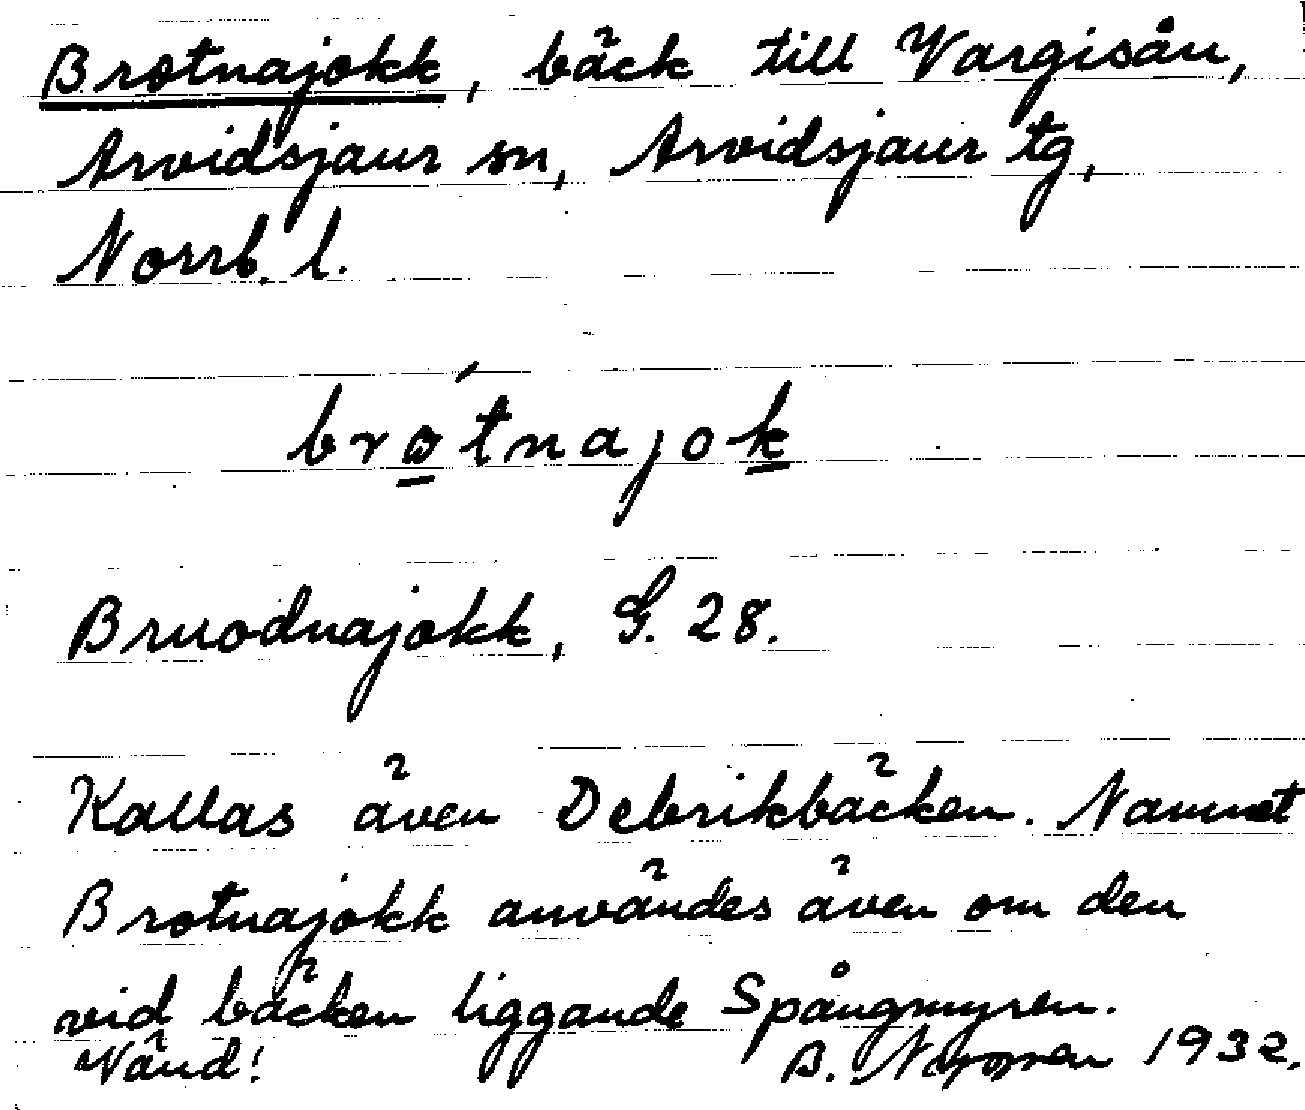 Brotnajokk, bäck till Vargisån,
Arvidsjaur sn, Arvidsjaur tg,
Norrb. l.
brώ̱tnajoḵ
Bruodnajokk, G. 28.
Kallas även Debrikbäcken. Namnet
Brotnajokk användes även om den
vid bäcken liggande Spångmyren.
Vänd! B. 1932.